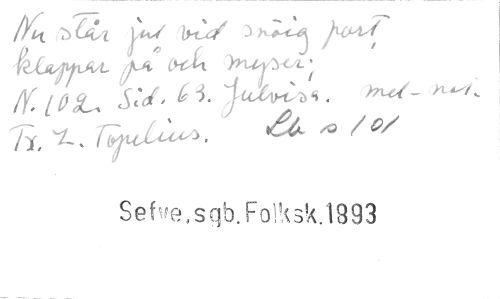 Nu står jul vid snöig port,
klappar på och myser;
N. 102. Sid. 63. Julvisa. mel-not.
Tx. Z. Topelius. Lb s 101
Sefve, sgb. Folksk. 1893